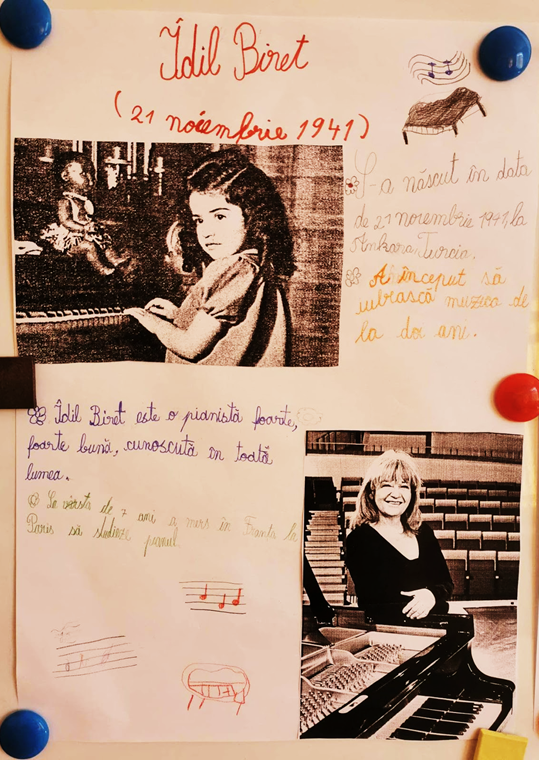 Îdil Biret
(21 noiembrie 1941)
S-a născut în data
de 21 noiembrie 1941, la
Ankara, Turcia.
A început să
iubrască muzica de
la doi ani.
Îdil Biret este o pianistă foarte,
foarte bună, cunoscută în toată
lumea.
La vârsta de 7 ani a mers în Franta la
Paris să studieze pianul.